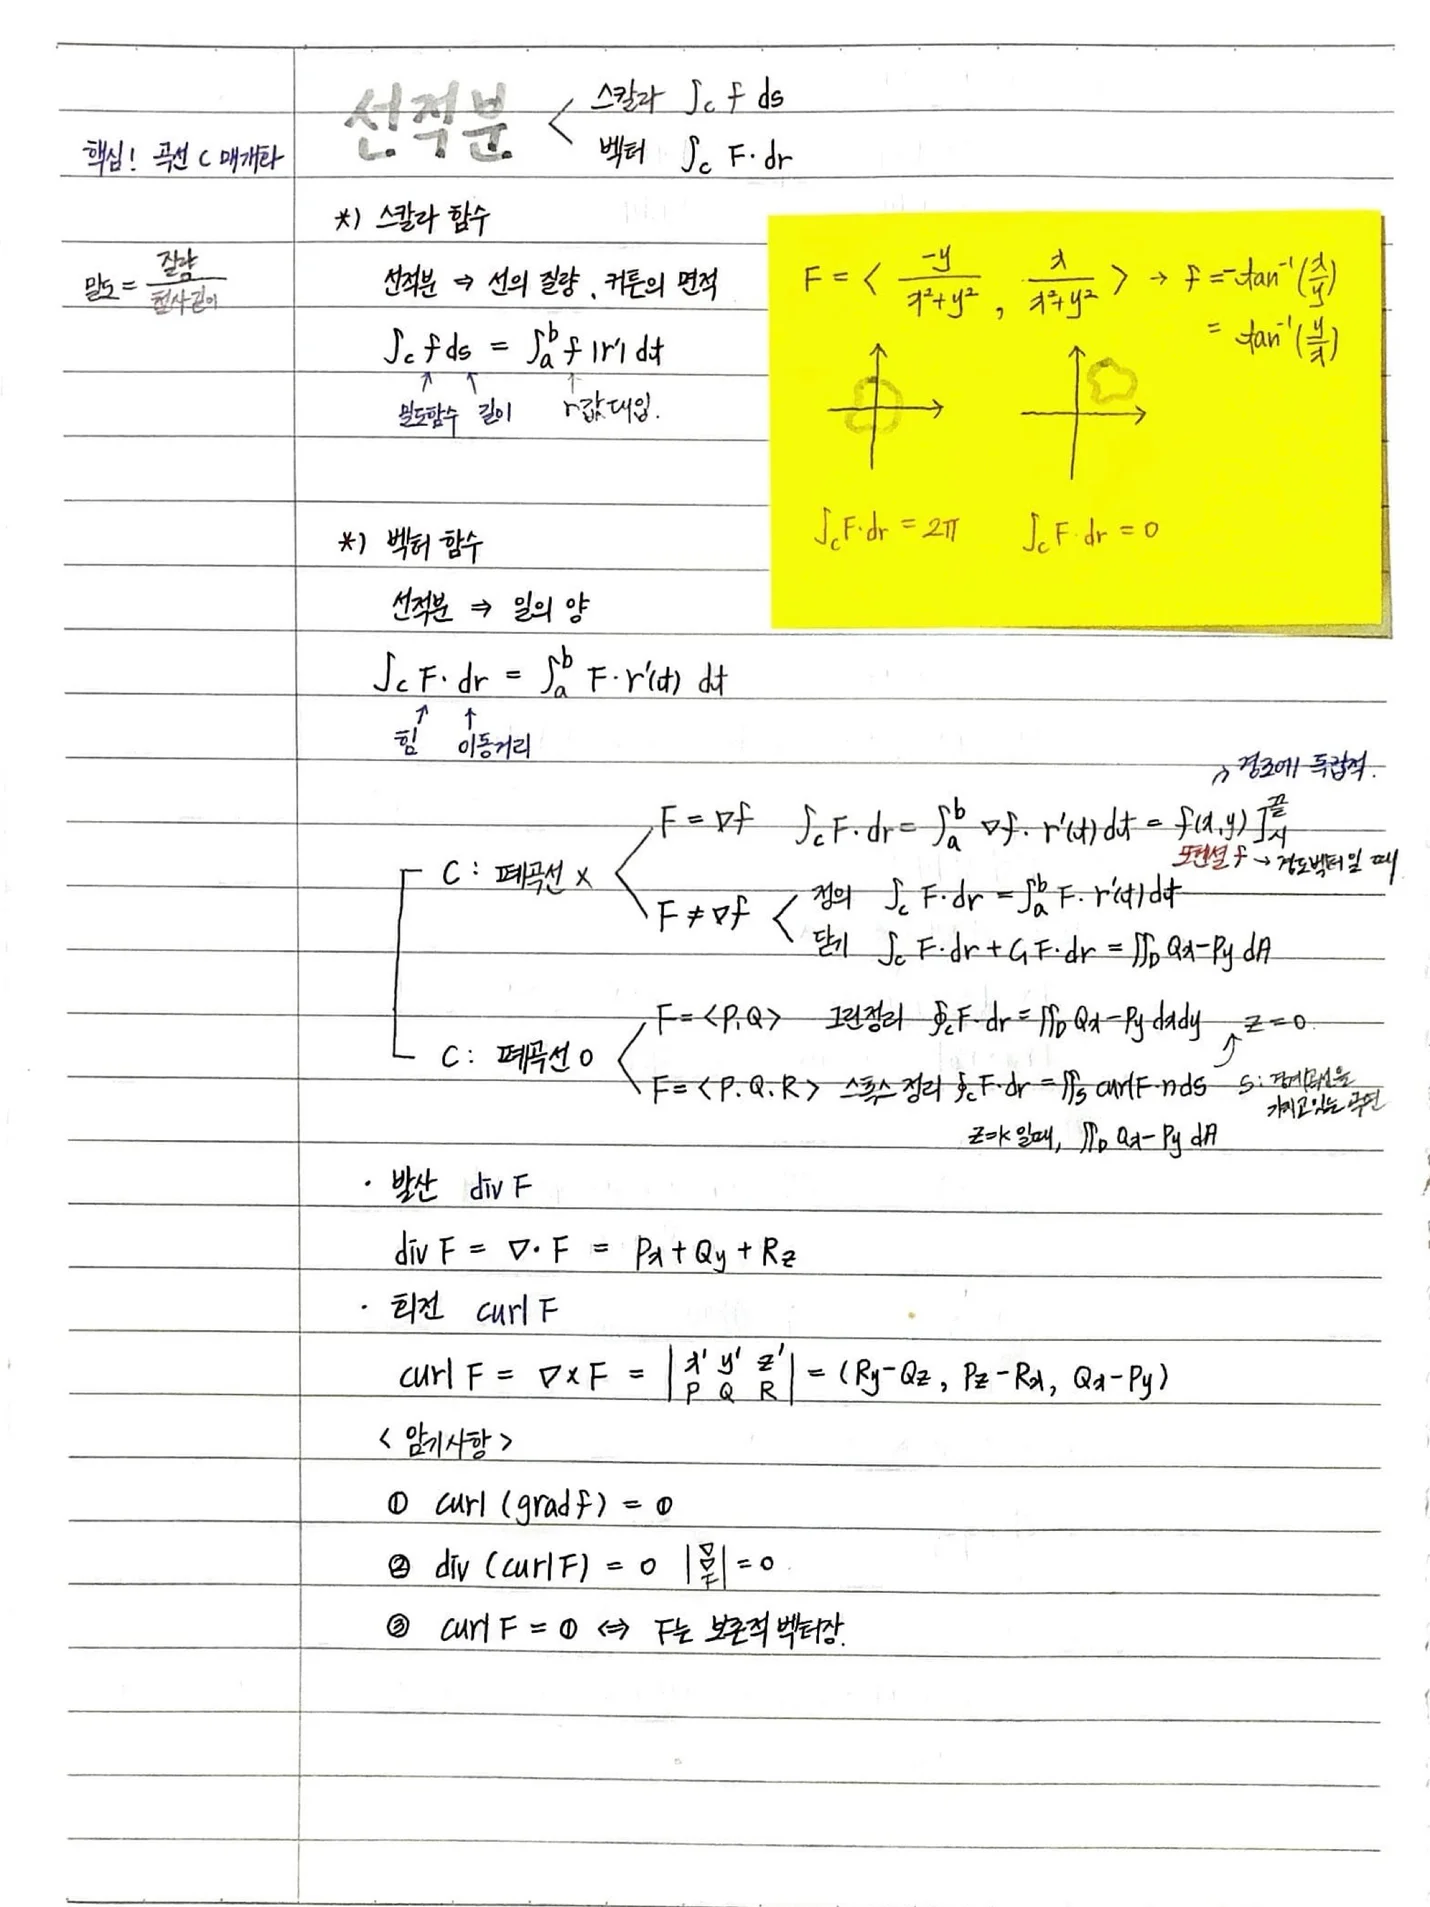 선적분 < 스칼라 ∫c f ds
벡터 ∫c F·dr
핵심! 곡선 C 매개화
*) 스칼라 함수
밀도 = 질량 / 철사길이
선적분 ⇒ 선의 질량, 커튼의 면적
∫c f ds = ∫a^b f |r'| dt
↑ 밀도함수 ↑ 길이 ↑ r값 대입.
F = < -y/(x²+y²) , x/(x²+y²) > → f = -tan⁻¹(x/y)
= tan⁻¹(y/x)
∫c F·dr = 2π ∫c F·dr = 0
*) 벡터 함수
선적분 ⇒ 일의 양
∫c F·dr = ∫a^b F·r'(t) dt
↑ 힘 ↑ 이동거리
→ 경로에 독립적.
C : 폐곡선 X
F = ∇f ∫c F·dr = ∫a^b ∇f·r'(t) dt = f(x,y)]시^끝
포텐셜 f → 경도벡터일 때
F ≠ ∇f < 정의 ∫c F·dr = ∫a^b F·r'(t) dt
닫기 ∫c F·dr + ∫c₁ F·dr = ∬D Qx-Py dA
C : 폐곡선 O
F = <P,Q> 그린정리 ∮c F·dr = ∬D Qx-Py dxdy z=0.
F = <P,Q,R> 스톡스 정리 ∮c F·dr = ∬s curlF·n ds
S : 경계곡선을
가지고 있는 곡면
z=k 일때, ∬D Qx-Py dA
· 발산 div F
div F = ∇·F = Px + Qy + Rz
· 회전 curl F
curl F = ∇×F = |x' y' z' / P Q R| = (Ry-Qz, Pz-Rx, Qx-Py)
< 암기사항 >
① curl (grad f) = 𝟘
② div (curl F) = 0 |∇ ∇ F| = 0
③ curl F = 𝟘 ⇔ F는 보존적 벡터장.